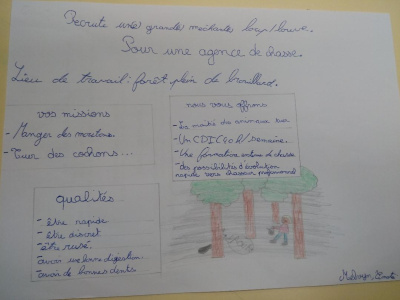 Recrute un/e grand/e méchant/e loup/louve.
Pour une agence de chasse.
Lieu de travail: forêt plein de brouillard.
vos missions
- Manger des moutons.
- Tuer des cochons...
nous vous offrons
- la moitié des animaux tuer
- Un CDI (40 h/semaine.
- Une formation intense de chasse
- des possibilités d'évolution
rapide vers chasseur professionnel
qualités
- être rapide
- être discret
- être rusé.
- avoir une bonne digestion.
- avoir de bonnes dents.